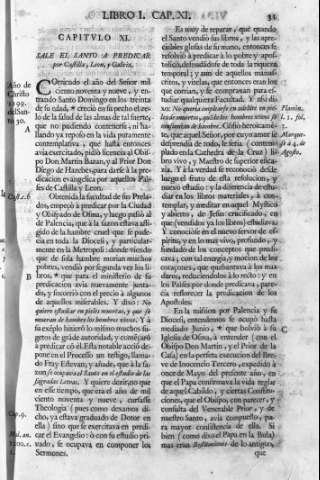 LIBRO I. CAP. XI.
CAPITULO XI.
SALE EL SANTO A PREDICAR
por Castilla, Leon, y Galicia.
Corriendo el año del Señor mil
ciento noventa y nueve, y en-
trando Santo Domingo en los treinta
de su edad, creciò en su pecho el ze-
lo de la salud de las almas de tal suerte,
que no pudiendo contenerle, ni ha-
llando yà reposo en la vida puramente
contemplativa, que hasta entonces
avia exercitado, pidiò licencia al Obis-
po Don Martin Bazan, y al Prior Don
Diego de Hazebes, para darse à la pre-
dicacion evangelica por aquellos Paì-
ses de Castilla, y Leon.
Obtenida la facultad de sus Prela-
dos, empezò à predicar por la Ciudad
y Obispado de Osma, y luego passò al
de Palencia, que à la sazon estava afli-
gido de la hambre cruel que se pade-
cia en toda la Diocesi, y particular-
mente en la Metropoli: donde viendo
que de sola hambre morian muchos
pobres, vendiò por segunda vez los li-
bros, que para el ministerio de su
predicacion avia nuevamente junta-
do, y socorriò con el precio à algunos
de aquellos miserables. Y dixo: No
quiero estudiar en pieles muertas, y que se
mueran de hambre los hombres vivos. Y à
su exẽplo hizierõ lo mismo muchos su-
getos de grãde autoridad, y començarõ
à predicar cõ èl. Esta notable acciõ de-
pone en el Processo un testigo, llama-
do Fray Estevan, y añade, que à la sa-
zon se ocupava el Santo en el estudio de las
sagradas Letras. Y quiere dezir, no que
en esse tiempo, que era el año de mil
ciento noventa y nueve, cursasse
Theologia (pues como dexamos di-
cho, ya estava graduado de Dotor en
ella) sino que se exercitava en predi-
car el Evangelio: ò con se estudio pri-
vado, se ocupava en componer los
Sermones.
Es muy de reparar, que quando
el Santo vendiò sus libros, y las apre-
ciables glosas de su mano, entonces se
resolviò à predicar lo pobre, y apos-
tolico, desnudandose de toda la riqueza
temporal; y aun de aquellos manus-
critos, y vitelas, que entonces eran los
que corrian, y se compravan para es-
tudiar qualquiera Facultad. Y assi di-
xo: No queria emplearse en estudio en pie-
les de muertos, quãdo los hombres vivos se
consumian de hambre.
que aquel Señor, por cuyo amor se
desprendia de todo, le seria (contem-
plado en la Cathedra de la Cruz) li-
bro vivo, y Maestro de superior efica-
zia. Y à la verdad se reconociò desde
luego el fruto de esta resolucion, y
nuevo estudio: y la diferencia de estu-
diar en los libros materiales, à con-
templar, y meditar en aquel Mystico
y abierto, de Jesus crucificado, en
que (vendidos ya los libros) estudiava.
Y conociòse en el nuevo fervor de es-
piritu, y en lo mas vivo, profundo, y
fundado de los conceptos que predi-
cava, con tal energia, y mocion de los
coraçones, que quebrantava à los mas
duros, reduciendolos à lo recto: y en
los Paìses por donde predicava, pare-
cia reflorecer la predicacion de los
Apostoles.
En la mission por Palencia y su
Diocesi, entendemos se ocupò hasta
mediado Junio, que bolviò à su
Iglesia de Osma, à entender (con el
Obispo Don Martin, y el Prior de la
Casa) en la perfeta execucion del Bre-
ve de Inocencio Tercero, expedido à
onze de Mayo del presente año, en
que el Papa confirmava la vida reglar
de aquel Cabildo, y ciertas Constitu-
ciones, que el Obispo, con parecer, y
consulta del Venerable Prior, y de
nuestro Santo, avia compuesto, pa-
ra mayor consistencia de ella. Si
bien (como dize el Papa en la Bula)
mas eran Restituciones de lo antiguo,
que